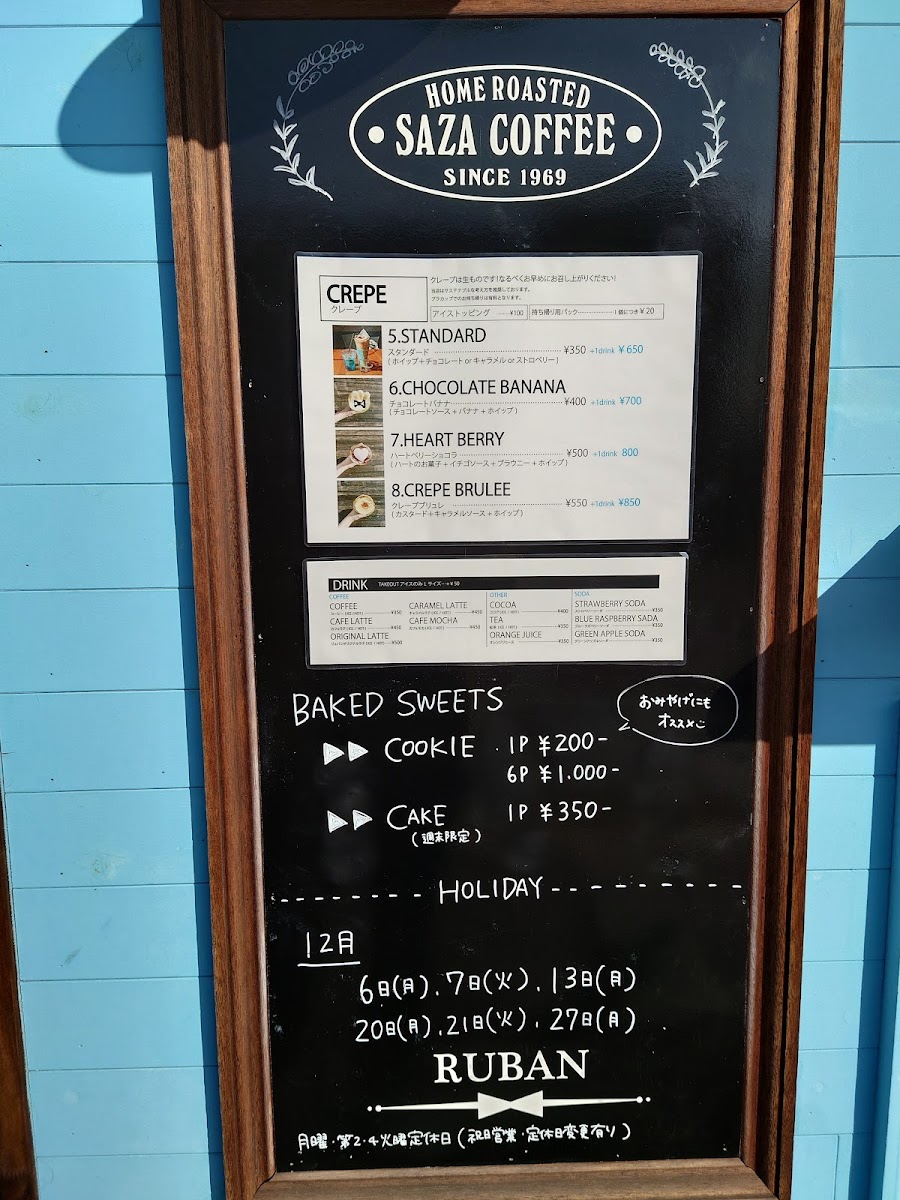 HOME ROASTED
SAZA COFFEE
SINCE 1969
CREPE
クレープ
クレープは生ものです!なるべくお早めにお召し上がりください!
当店はサステナブルな考え方を推奨しております。
プラカップでのお持ち帰りは有料となります。
アイストッピング ……¥100
持ち帰り用パック……………1個につき¥20
5.STANDARD
スタンダード ¥350 +1drink ¥650
(ホイップ+チョコレート or キャラメル or ストロベリー)
6.CHOCOLATE BANANA
チョコレートバナナ ¥400 +1drink ¥700
(チョコレートソース + バナナ + ホイップ)
7.HEART BERRY
ハートベリーショコラ ¥500 +1drink 800
(ハートのお菓子 + イチゴソース + ブラウニー + ホイップ)
8.CREPE BRULEE
クレープブリュレ ¥550 +1drink ¥850
(カスタード+キャラメルソース + ホイップ)
DRINK TAKEOUT アイスのみ L サイズ…+¥50
COFFEE
COFFEE
コーヒー (ICE / HOT) ¥350
CAFE LATTE
カフェラテ (ICE / HOT) ¥450
ORIGINAL LATTE
¥500
CARAMEL LATTE
キャラメルラテ (ICE / HOT) ¥450
CAFE MOCHA
カフェモカ (ICE / HOT) ¥450
OTHER
COCOA
ココア (ICE / HOT) ¥400
TEA
紅茶 (ICE / HOT) ¥350
ORANGE JUICE
オレンジジュース ¥350
SODA
STRAWBERRY SODA
ストロベリーソーダ ¥350
BLUE RASPBERRY SADA
ブルーラズベリーソーダ ¥350
GREEN APPLE SODA
グリーンアップルソーダ ¥350
BAKED SWEETS
おみやげにも
オススメ
COOKIE 1P ¥200-
6P ¥1.000-
CAKE 1P ¥350-
(週末限定)
HOLIDAY
12月
6日(月).7日(火).13日(月)
20日(月).21日(火).27日(月)
RUBAN
月曜・第2・4火曜定休日(祝日営業・定休日変更有り)